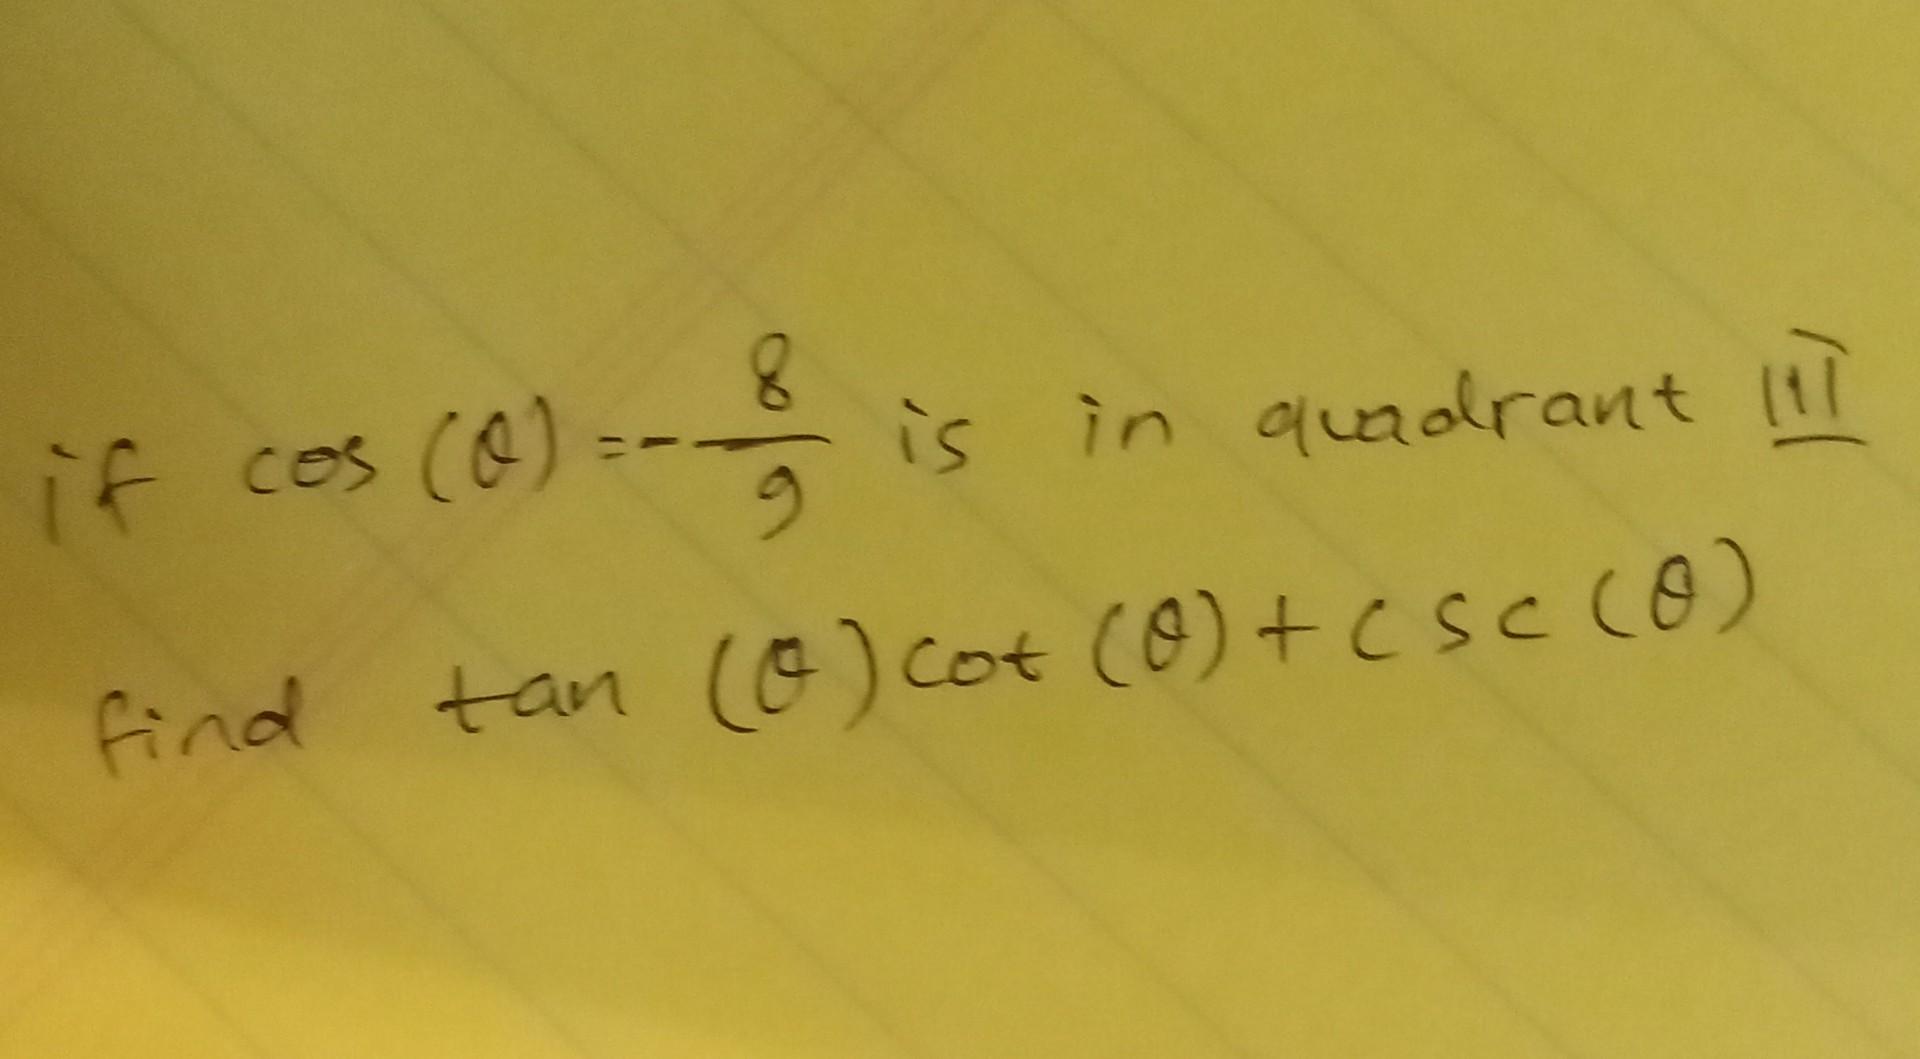 if cos (θ) = - 8/9 is in quadrant III
find tan (θ) cot (θ) + csc (θ)